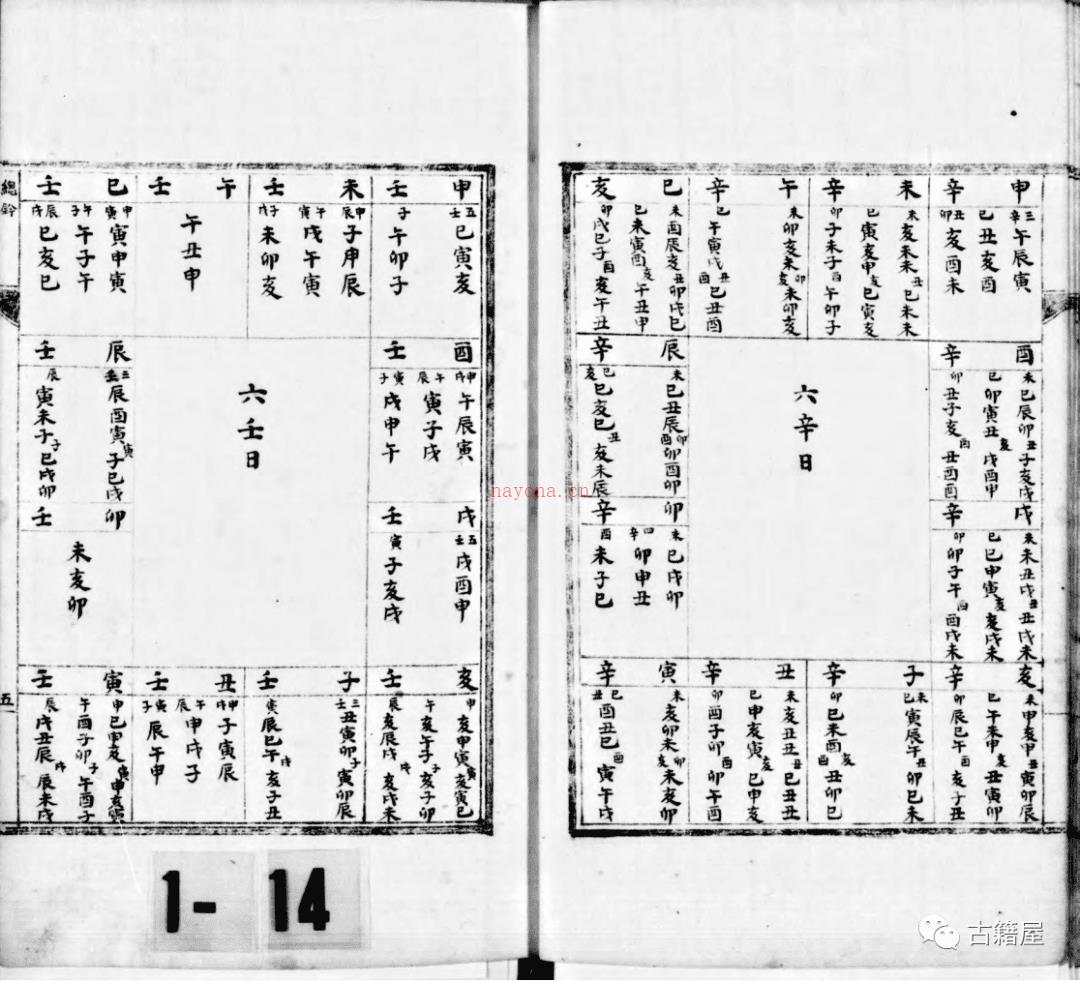 申 辛
三辛午辰寅
巳丑亥酉
丑卯亥酉未
未 辛
未亥未未丑巳未未
巳寅亥申亥巳寅亥
卯子未子酉午卯子
午 辛
未卯亥未卯亥未卯亥
巳午寅戌丑酉巳丑酉
巳 亥
未酉辰亥丑卯戌巳
巳未寅酉亥午丑申
卯戌巳子酉亥午丑
酉 辛
未巳辰卯丑子亥戌
巳卯寅丑亥戌酉申
卯丑子亥酉丑酉酉
辰 辛
未巳丑辰卯酉卯酉卯
巳亥巳亥巳丑亥未辰
六辛日
戌 辛
未未丑戌丑丑戌未
巳巳申寅亥亥戌未
卯卯子午酉酉戌未
卯 辛
未巳戌卯
四辛卯申丑
酉未子巳
亥 辛
未申亥申丑寅卯辰
巳午未申亥丑寅卯
卯辰巳午酉亥子丑
子 辛
未巳寅辰午丑卯巳未
卯巳未酉亥丑卯巳
丑 辛
未亥丑丑丑巳丑丑
巳申亥寅亥巳申亥
卯酉子卯酉卯午酉
寅 辛
未亥卯未卯亥未亥卯
巳丑酉丑巳酉寅午戌
申 壬
五壬巳寅亥
子午卯子
未 壬
申辰子申辰
午寅戌午寅
子戌未卯亥
午 壬
午丑申
巳 壬
申寅寅申寅
午子午子午
辰戌巳亥巳
酉 壬
申戌午辰寅
午辰寅子戌
寅子戌申午
辰 壬
三壬辰酉寅寅子巳戌
辰寅未子子巳戌卯
六壬日
戌 壬
五壬戌酉申
寅子亥戌
卯 壬
未亥卯
亥 壬
申亥申寅寅亥寅巳
午亥午子子亥子卯
辰亥辰戌戌亥戌未
子 壬
三壬丑寅卯子寅卯辰
寅辰巳午戌亥子丑
丑 壬
申戌子寅辰
午辰申戌子
寅子辰午申
寅 壬
申巳申亥寅申亥寅
午酉子卯子午酉子
辰戌丑辰戌辰未戌
總鈐
五
1-14
nayona.cn
古籍屋